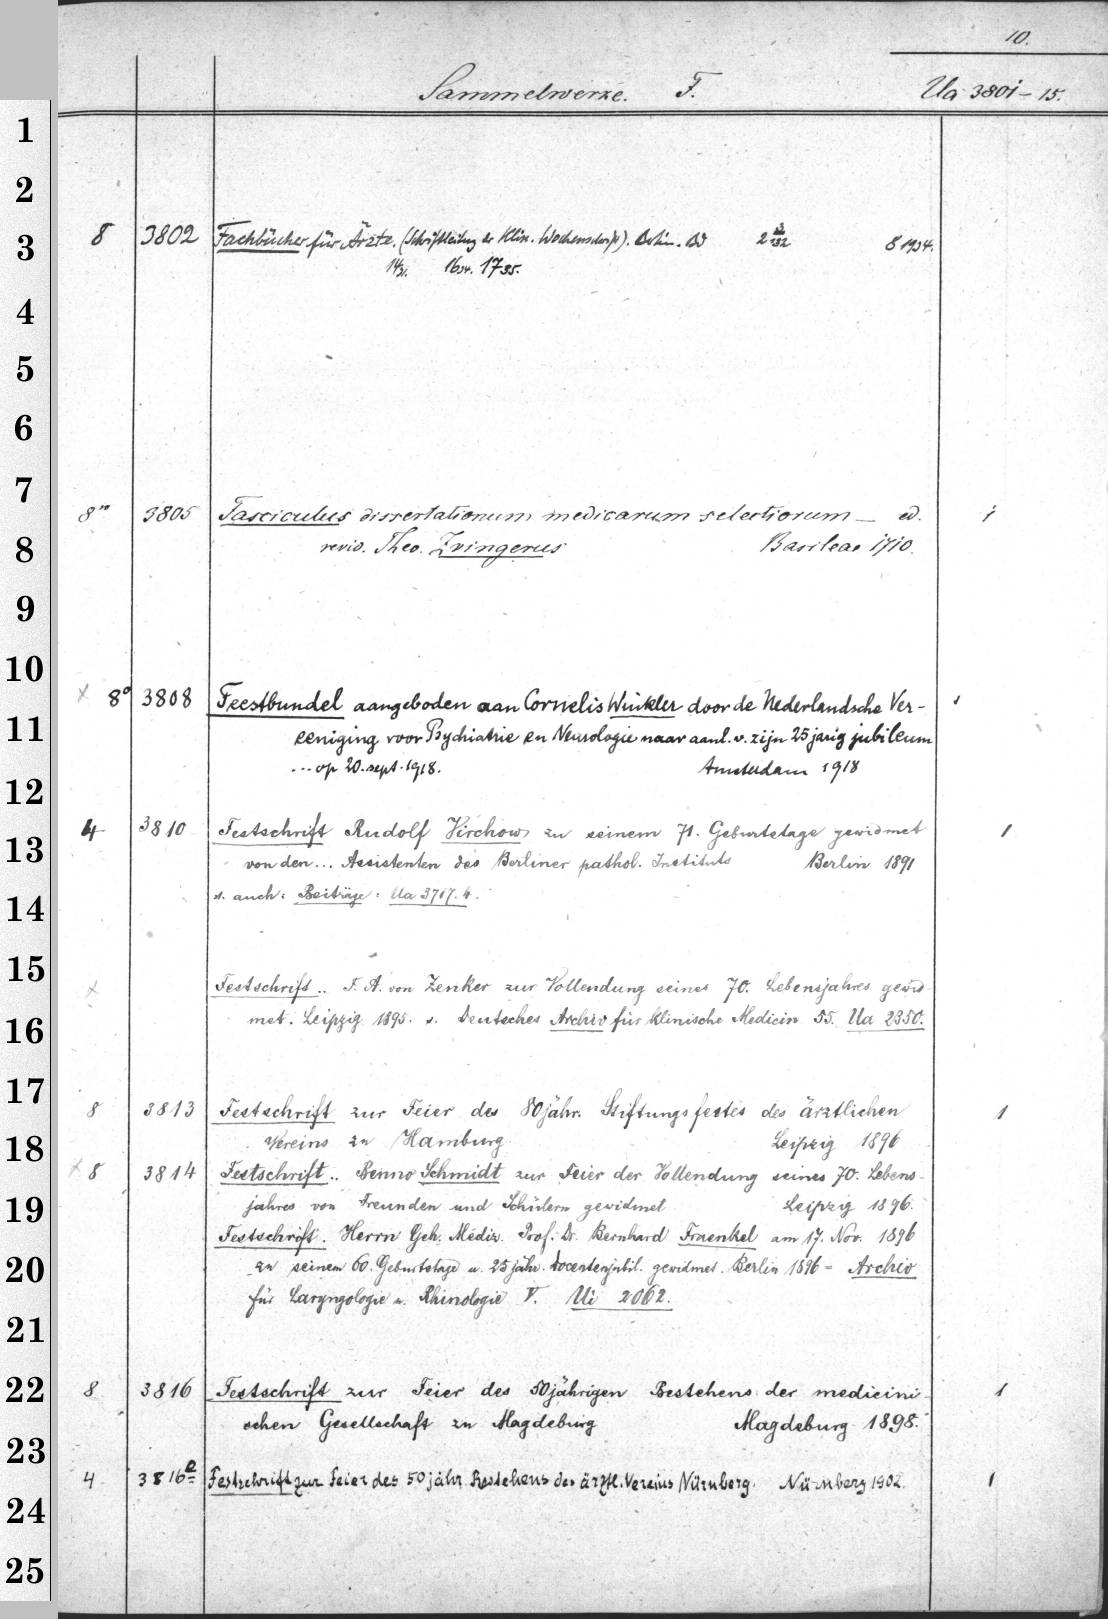 10.
Sammelwerke. F. Ua 3801-15.
1
2
3
8 3802 Fachbücher für Ärzte. (Schriftleitung der Klin. Wochenschrift). Berlin. Bd 2 3/1932 8 1934.
14/31. 16 34. 17 35.
4
5
6
7
8° 3805 Fasciculus dissertationum medicarum selectiorum — ed. 1
8
revid. Theo. Zvingerus Basileae 1710.
9
10
x 8° 3808 Feestbundel aangeboden aan Cornelis Winkler door de Nederlandsche Ver- 1
11
eeniging voor Psychiatrie en Neurologie naar aanl. v. zijn 25 jarig jubileum
... op 20. sept. 1918. Amsterdam 1918
12
4 3810 Festschrift Rudolf Virchow zu seinem 71. Geburtstage gewidmet 1
13
von den... Assistenten des Berliner pathol. Instituts Berlin 1891
s. auch: Beiträge: Ua 3717.4.
14
15
x Festschrift.. F. A. von Zenker zur Vollendung seines 70. Lebensjahres gewid-
16
met. Leipzig 1895. s. Deutsches Archiv für klinische Medicin 55. Ua 2350.
17
8 3813 Festschrift zur Feier des 80jähr. Stiftungsfestes des ärztlichen 1
18
Vereins zu Hamburg Leipzig 1896
x 8 3814 Festschrift.. Benno Schmidt zur Feier der Vollendung seines 70. Lebens-
19
jahres von Freunden und Schülern gewidmet Leipzig 1896.
Festschrift. Herrn Geh. Mediz. Prof. Dr. Bernhard Fraenkel am 17. Nov. 1896
20
zu seinem 60. Geburtstage u. 25 jähr. Docentenjubil. gewidmet. Berlin 1896 = Archiv
für Laryngologie u. Rhinologie V. Ui 2062.
21
22
8 3816 Festschrift zur Feier des 50jährigen Bestehens der medicini- 1
schen Gesellschaft zu Magdeburg Magdeburg 1898.
23
4 3816e Festschrift zur Feier des 50 jähr. Bestehens des ärztl. Vereins Nürnberg. Nürnberg 1902. 1
24
25